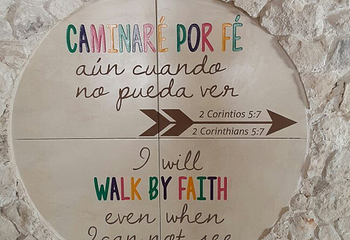 CAMINARÉ POR FÉ
aún cuando
no pueda ver
2 Corintios 5:7
2 Corinthians 5:7
I will
WALK BY FAITH
even when
I can not see